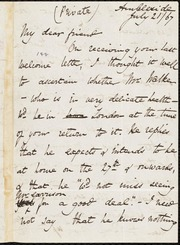 (Private)
Ambleside
July 21/67
My dear friend
On receiving your last
welcome letter, I thought it well
to ascertain whether Mr.
- who is in very delicate health -
to be in London at the time
of your return to it. He replies
that he expects & intends to be
at home on the 27th & onwards,
& that he "wd not miss seeing
for a good deal." I need
not say that he knows nothing